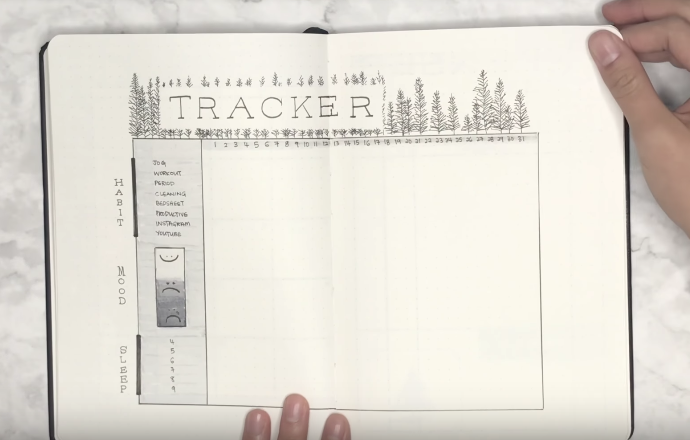 TRACKER
1 2 3 4 5 6 7 8 9 10 11 12 13 14 15 16 17 18 19 20 21 22 23 24 25 26 27 28 29 30 31
HABIT
JOG
WORKOUT
PERIOD
CLEANING
BEDSHEET
PRODUCTIVE
INSTAGRAM
YOUTUBE
MOOD
SLEEP
4
5
6
7
8
9